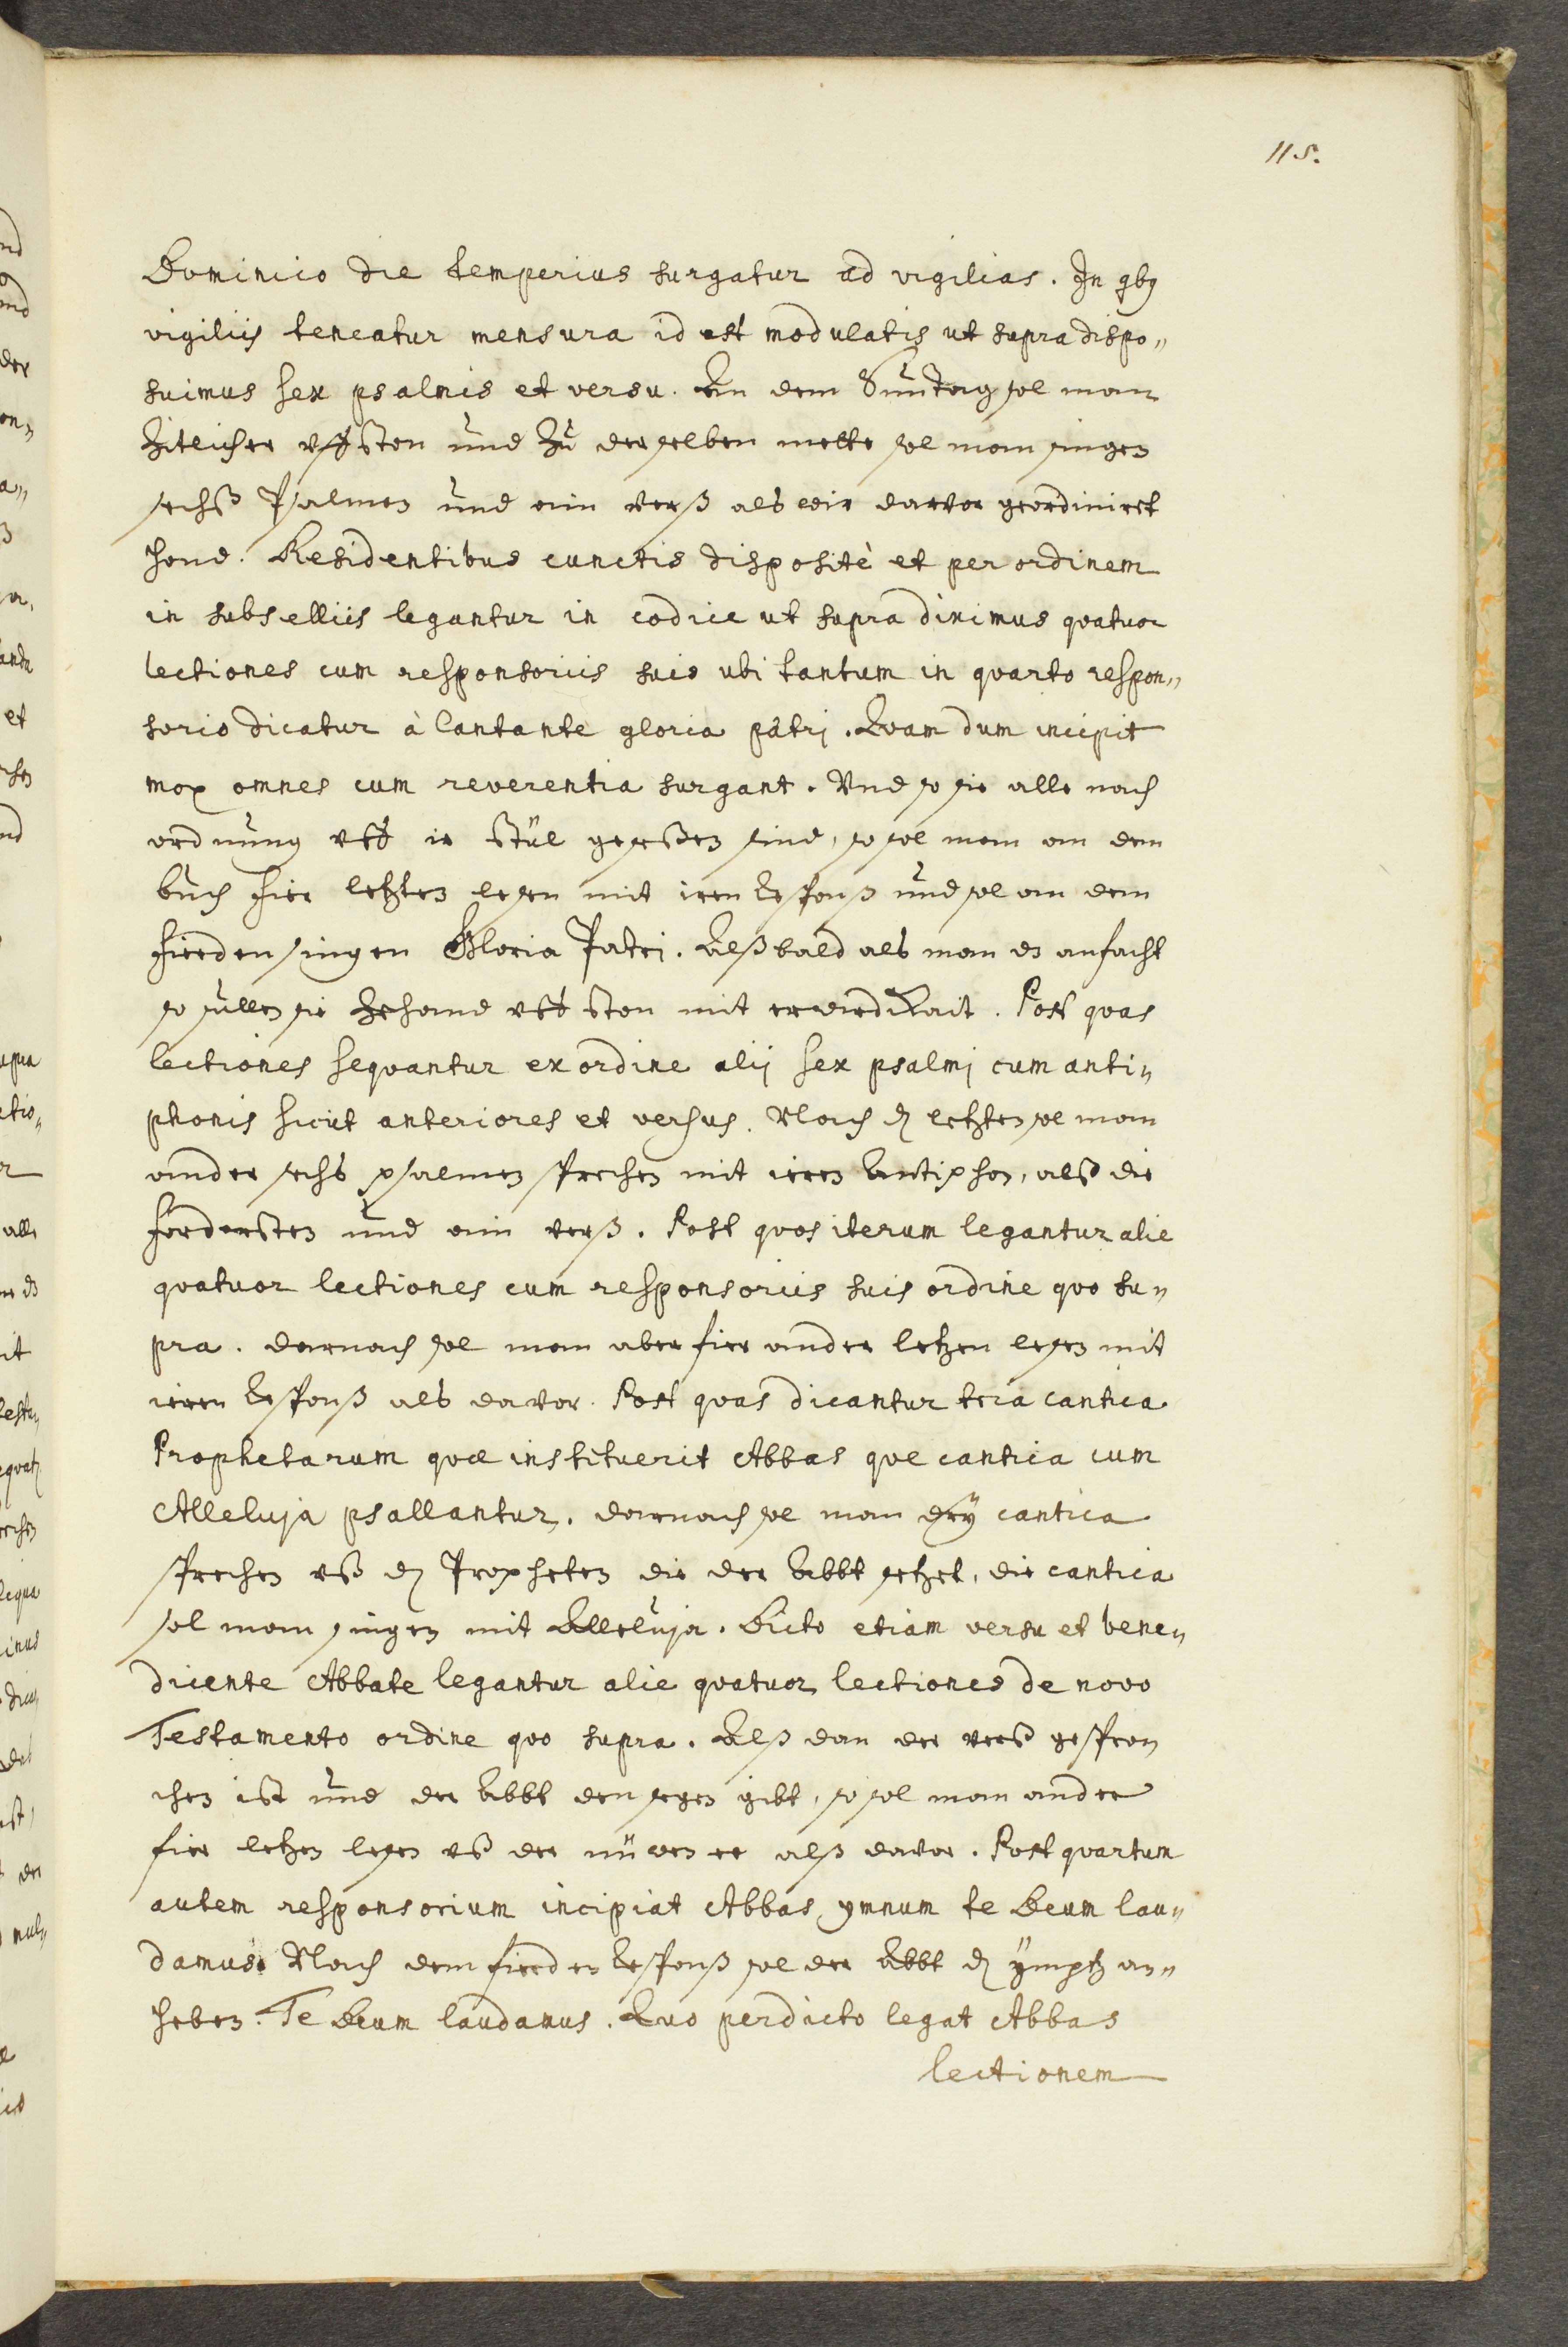 115.
Dominico die temperius surgatur ad vigilias. In qbg
vigiliis teneatur mensura id est modulatis ut supra dispo„
suimus sex psalmis et versu. An dem Suntag sol man
Zitlicher vffston und Zu derselben mette sol man singen
sechß Psalmen und ein verß als wir darvor geordiniret
hond. Residentibus cunctis dispositè et per ordinem
in subselliis legantur in codice ut supra diximus qvatuor
lectiones cum responsoriis suis ubi tantum in qvarto respon„
sorio dicatur à Cantante gloria patrj. Qvam dum incipit
mox omnes cum reverentia surgant. Vnd so sie alle nach
ordnung vff ir stül gesessen sind, so sol man an dem
buch fier letzten lesen mit iren Respons und sol an dem
fierden singen Gloria Patri. Alßbald als man es anfacht
so sullen sie Zehand vff ston mit erwirdikait. Post qvas
lectiones seqvantur ex ordine alij sex psalmj cum anti„
phonis sicut anteriores et versus. Nach dn letzten sol man
ander sechs psalmen sprechen mit iren Antiphon, alß die
fordersten und ein verß. Post qvos iterum legantur alie
qvatuor lectiones cum responsoriis suis ordine qvo su„
pra. darnach sol man aber fier ander letzen lesen mit
iren Respons als davor. Post qvas dicantur tria cantica
Prophetarum qvæ instituerit Abbas qve cantica cum
Alleluja psallantur. darnach sol man dry cantica
sprechen vß dn Propheten die der Abbt setzet, die cantica
sol man singen mit Alleluja. Dicto etiam versu et bene„
dicente Abbate legantur alie qvatuor lectiones de novo
Testamento ordine qvo supra. Alß dan der verß gespro„
chen ist und der Abbt den segen gibt, so sol man ander
fier letzen lesen vß der nüwen ee alß davor. Post qvartum
autem responsorium incipiat Abbas ymnum te Deum lau„
damus. Nach dem fierden Respons sol der Abbt dn ympß an„
heben. Te Deum laudamus. Qvo perdicto legat Abbas
lectionem